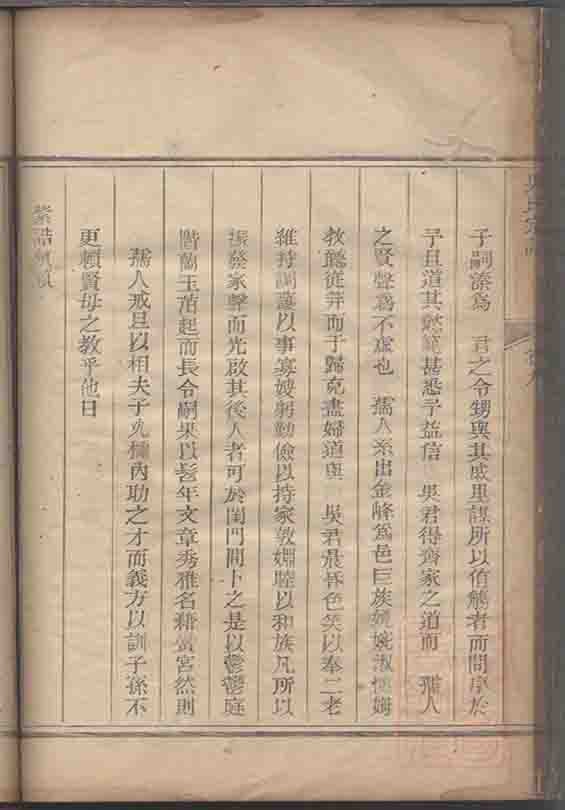 子嗣溱為 君之令甥與其戚里謀所以侑觴者而問序於
予且道其懿範甚悉予益信 吳君得齊家之道而 孺人
之賢聲為不虛也 孺人系出金峰為邑巨族婉娩淑慎姆
教聽從笄而于歸克盡婦道與 吳君晨昏色笑以奉二老
維持調護以事寡嫂躬勤儉以持家敦婣睦以和族凡所以
振發家聲而光啟其後人者可於閨門間卜之是以鬱鬱庭
階蘭玉茁起而長令嗣果以髫年文章秀雅名藉黌宮然則
孺人戒旦以相夫子允擅內功之才而義方以訓子孫不
更賴賢母之教乎他日
紫誥